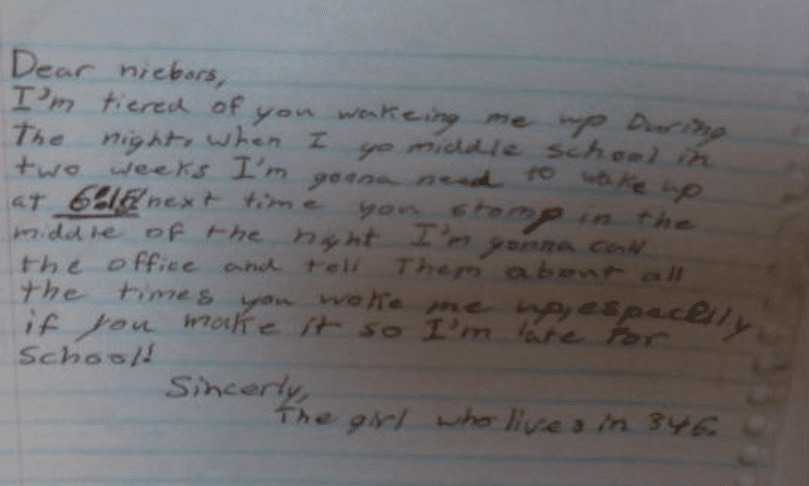 Dear niebors,
I'm tiered of you wakeing me up During
The night, when I go middle school in
two weeks I'm goana need to wake up
at 6:15! next time you stomp in the
middle of the night I'm gonna call
the office and tell Them about all
the times you woke me up, especally
if you make it so I'm late for
school!
Sincerly,
The girl who lives in 346.